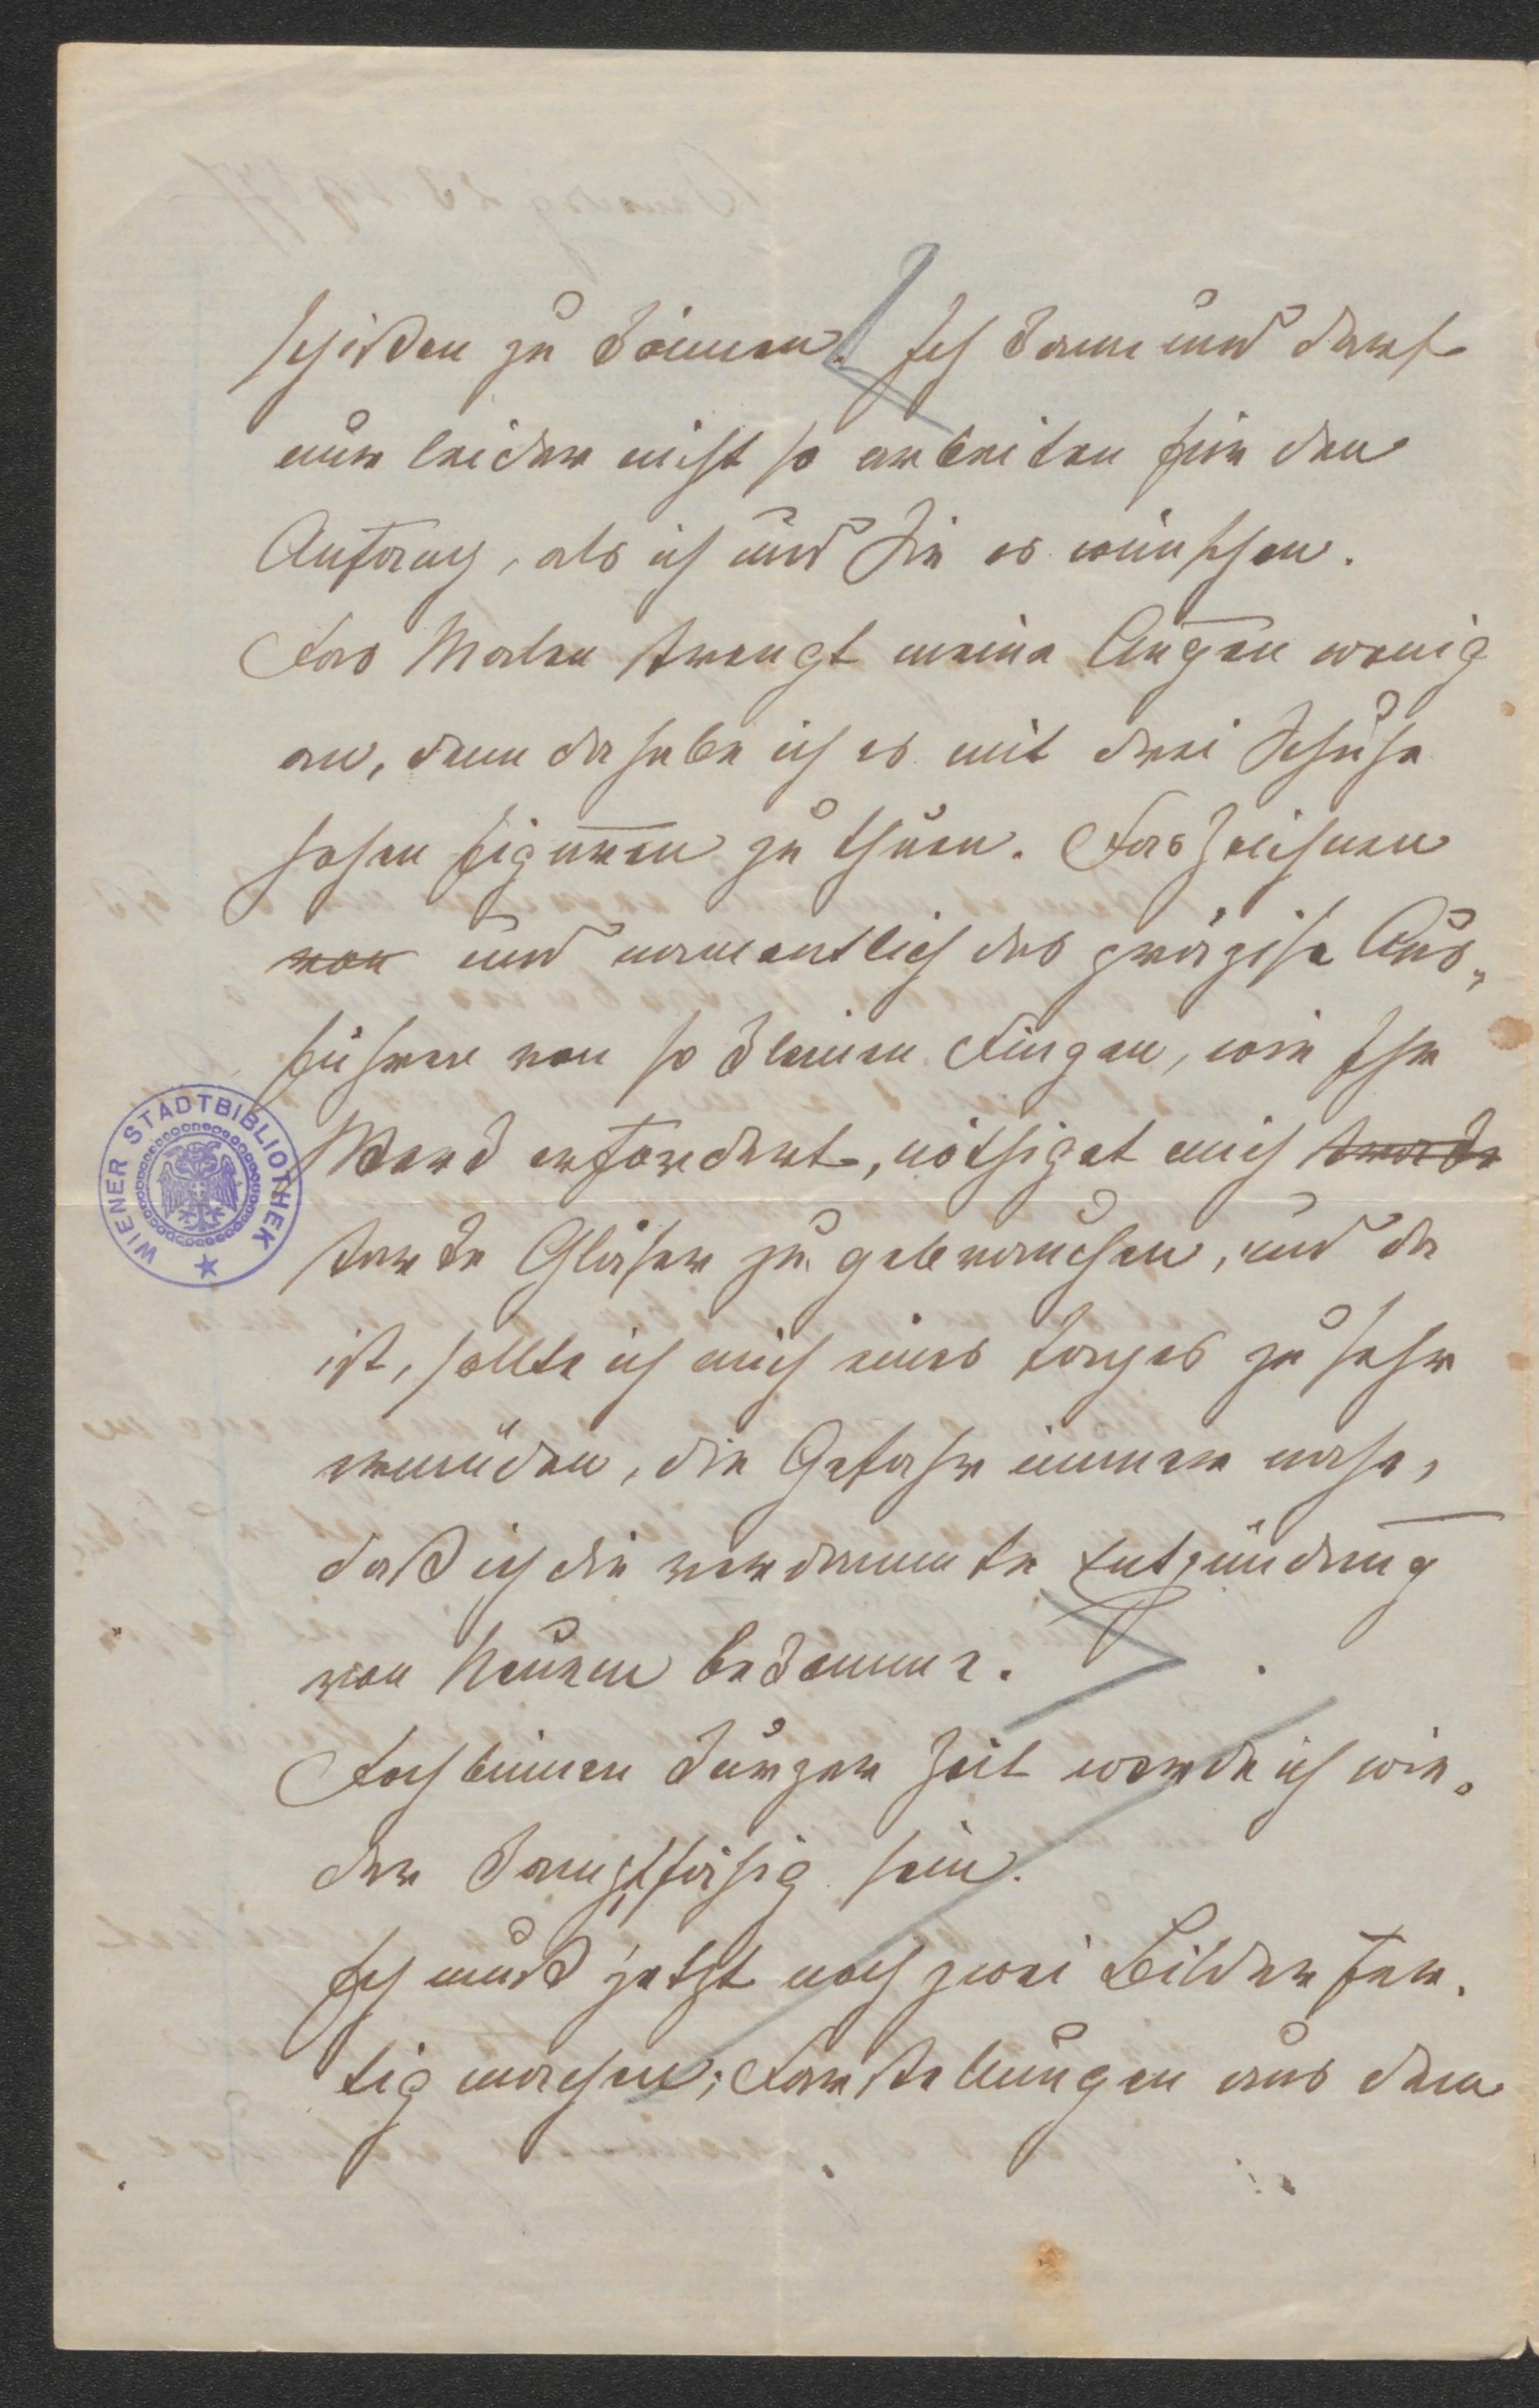 schicken zu können. Ich kann und darf
nur leider nicht so arbeiten für den
Anfang, als ich und Sie es wünschen.
Das Malen strengt meine Augen wenig
an, denn da habe ich es mit drei Schuhe
hohen Figuren zu thuen. Das Zeichnen
von und namentlich das präzise Aus-
führen von so kleinen Dingen, wie Ihr
Werk erfordert, nöthiget mich starke
starke Gläser zu gebrauchen, und da
ist, sollte ich mich eines Tages zu sehr
ermüden, die Gefahr immer nahe,
daß ich die verdammte Entzündung
von Neuem bekomme.
Doch binnen kurzer Zeit werde ich wie-
der kampffähig sein.
Ich muß jetzt noch zwei Bilder fer-
tig machen; Darstellungen aus dem
WIENER STADTBIBLIOTHEK